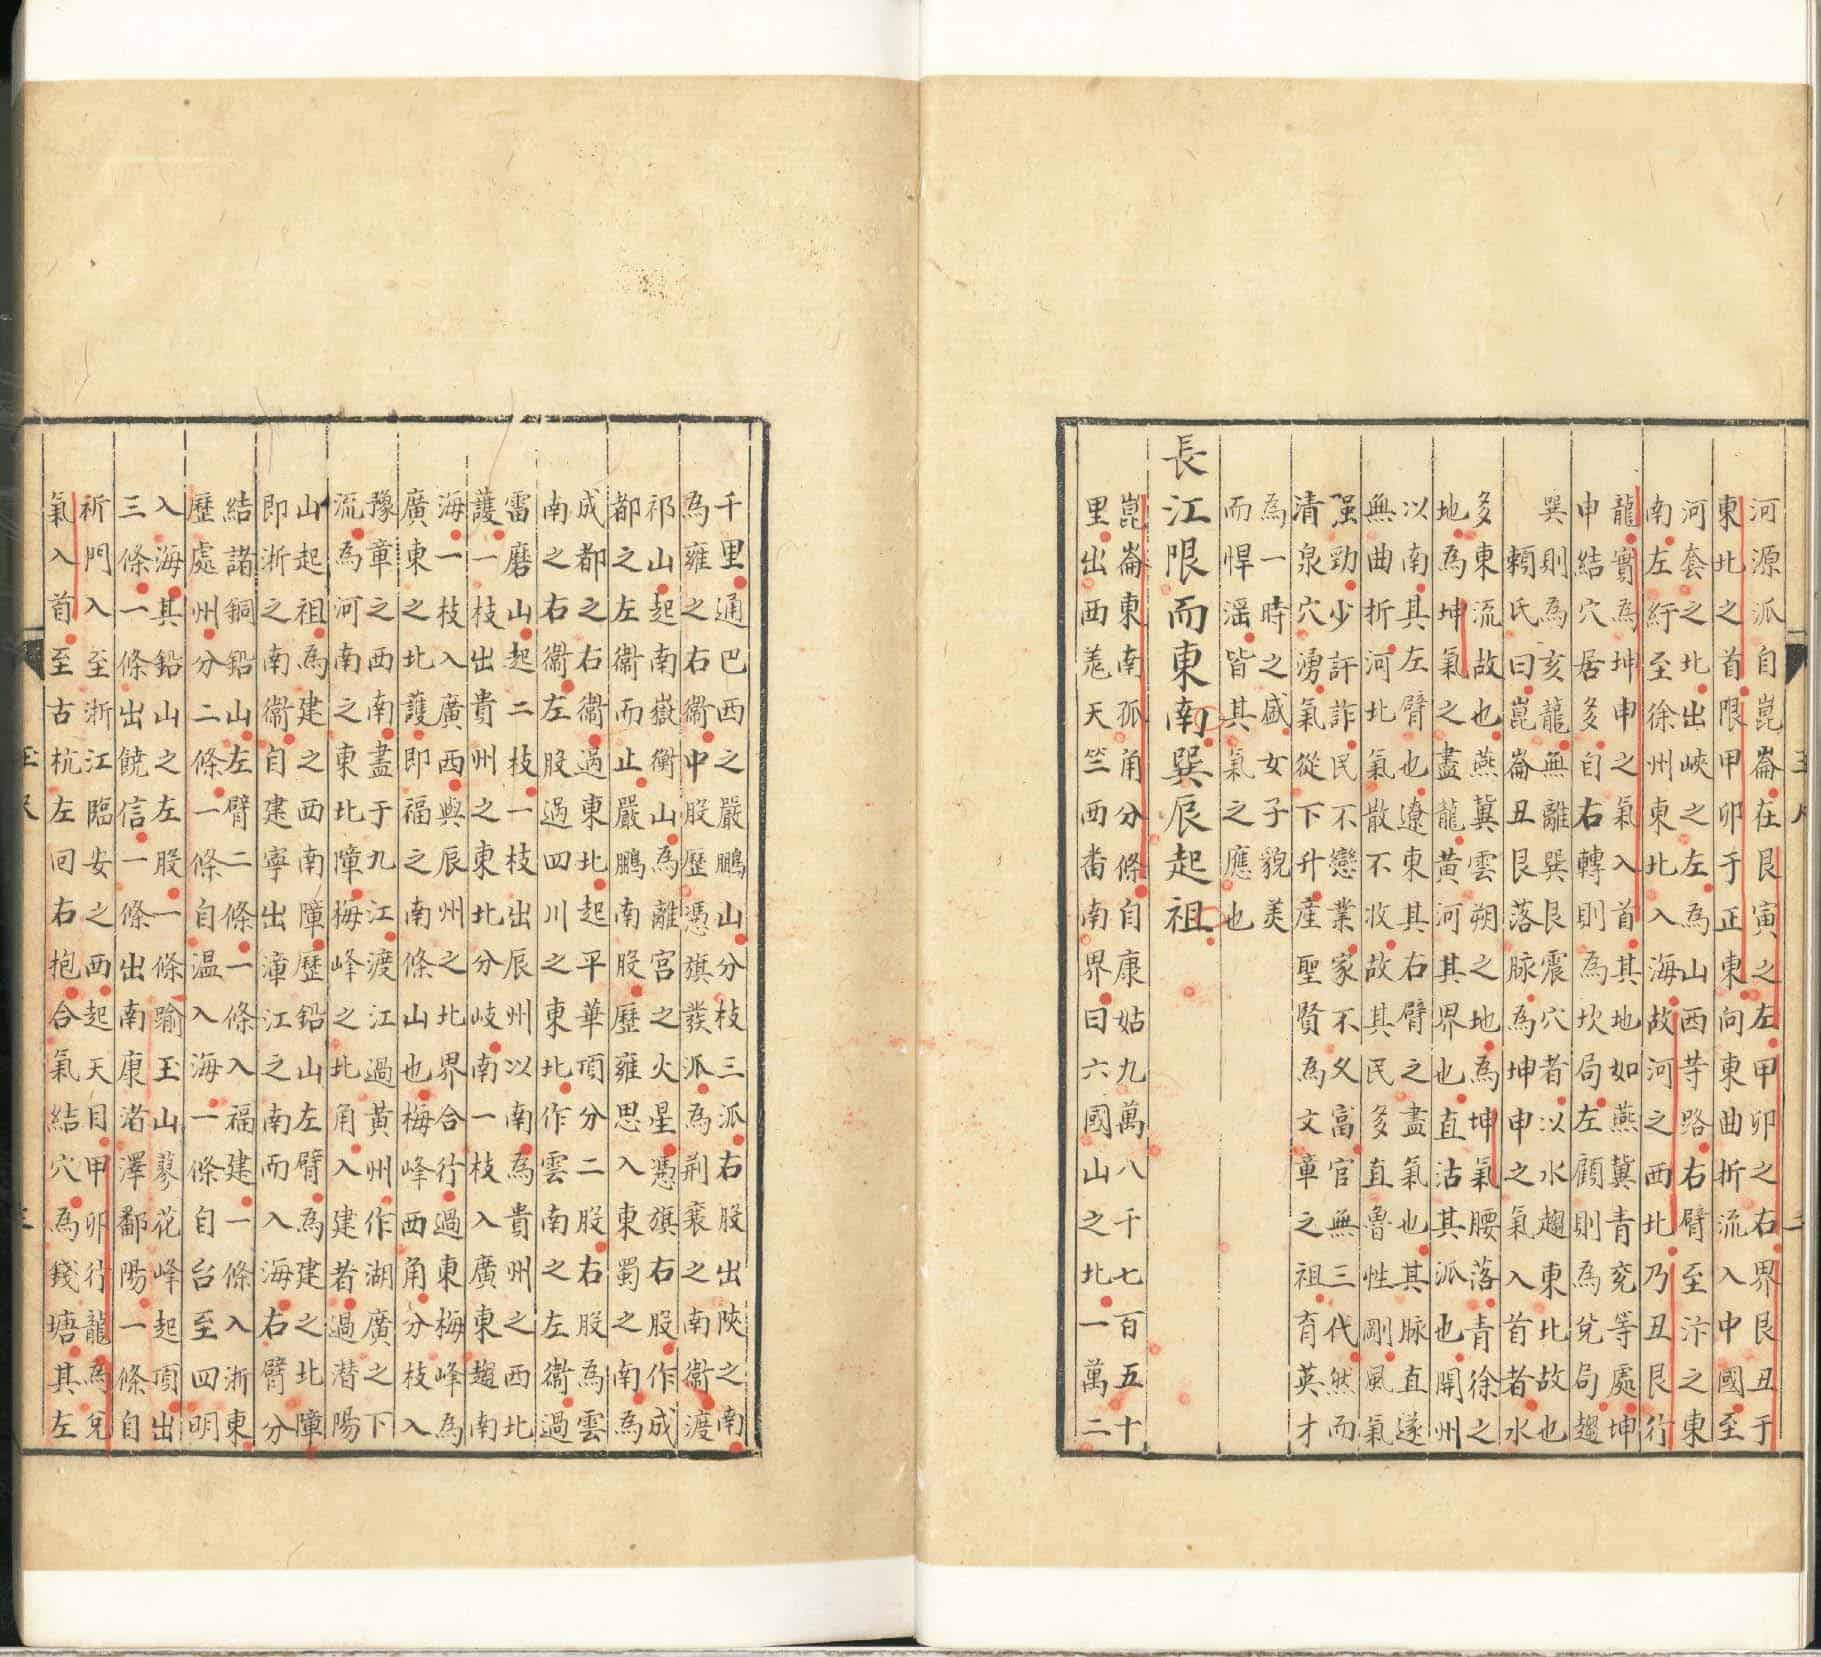 河源派自崑崙在艮寅之左甲卯之右界艮丑于
東北之首限甲卯于正東向東曲折流入中國至
河套之北出峽之左為山西䓁路右臂至汴之東
南左紆至徐州東北入海故河之西北乃丑艮行
龍實為坤申之氣入首其地如燕冀青兖等處坤
申結穴居多自右轉則為坎局左顧則為兌局趨
巽則為亥龍無離巽艮震穴者以水趨東北故也
頼氏曰崑崙丑艮落脉為坤申之氣入首者水
多東流故也燕冀雲朔之地為坤氣腰落青徐之
地為坤氣之盡龍黃河其界也直沽其派也開州
以南其左臂也遼東其右臂之盡氣也其脉直遂
無曲折河北氣散不收故其民多直魯性剛風氣
强勁少訐詐民不戀業家不乂富官無三代然而
清泉穴湧氣從下升產聖賢為文章之祖育英才
為一時之盛女子貌美
而悍滛皆其氣之應也
長江限而東南巽辰起祖
崑崙東南孤角分條自康姑九萬八千七百五十
里出西羗天竺西畨南界曰六國山之北一萬二
千里通巴西之嚴鵬山分枝三派右股出陝之南
為雍之右衢中股歷憑旗發派為荆襄之南衢渡
祁山起南嶽衡山為離宮之火星憑旗右股作成
都之左衢而止嚴鵬南股歷雍思入東蜀之南為
成都之右衢過東北起平華頂分二股右股為雲
南之右衢左股過四川之東北作雲南之左衢過
雷磨山起二枝一枝出辰州以南為貴州之西北
護一枝出貴州之東北分岐南一枝入廣東趨南
海一枝入廣西與辰州之北界合行過東梅峰為
廣東之北護即福之南條山也梅峰西角分枝入
豫章之西南盡于九江渡江過黃州作湖廣之下
流為河南之東北障梅峰之北角入建者過潜陽
山起祖為建之西南障歷鉛山左臂為建之北障
即浙之南衢自建寧出漳江之南而入海右臂分
結諸銅鉛山左臂二條一條入福建一條入浙東
歷處州分二條一條自温入海一條自台至四明
入海其鉛山之左股一條踰玉山蓼花峰起頂出
三條一條出饒信一條出南康渚澤鄱陽一條自
祈門入至浙江臨安之西起天目甲卯行龍為兌
氣入首至古杭左回右抱合氣結穴為錢塘其左